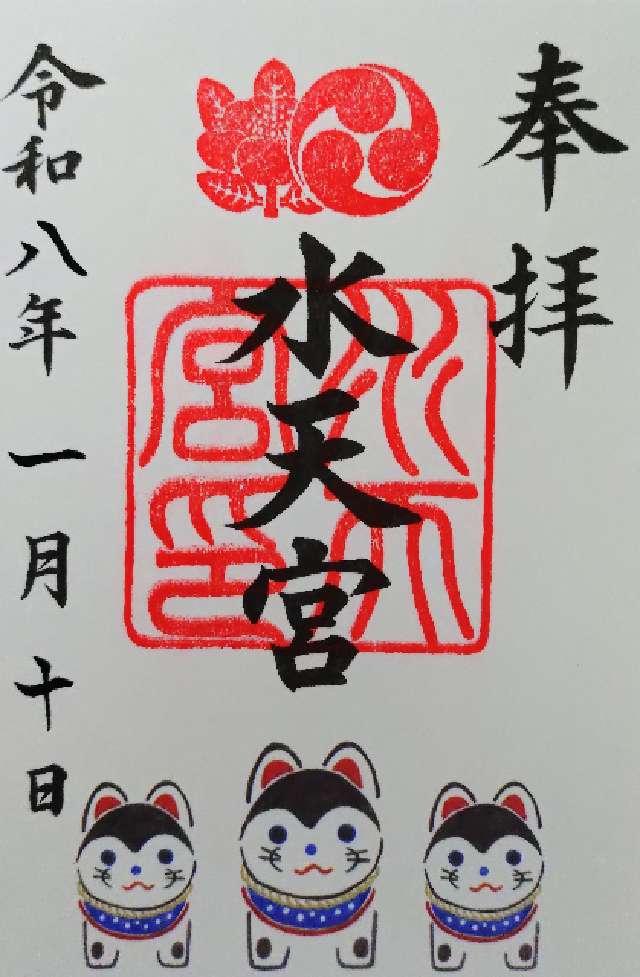 奉拝
水天宮
水天宮印
令和八年一月十日